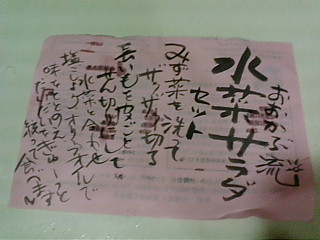 おおかぶ流
水菜サラダ
セット
みず菜を洗って
ザクザク切り
長いもと皮ごとして
せん切りにして
水菜と合わせ
塩こしょう オリーブオイルで
味をととのえ
ぎゅーっと
絞って食べます